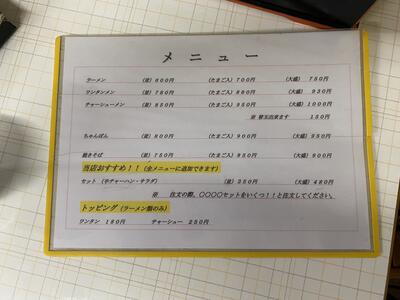 メニュー
ラーメン (並) 600円 (たまご入) 700円 (大盛) 750円
ワンタンメン (並) 780円 (たまご入) 880円 (大盛) 930円
チャーシューメン (並) 850円 (たまご入) 950円 (大盛) 1000円
※ 替玉出来ます 150円
ちゃんぽん (並) 800円 (たまご入) 900円 (大盛) 950円
焼きそば (並) 750円 (たまご入) 850円 (大盛) 900円
当店おすすめ!!(全メニューに追加できます)
セット (半チャーハン・サラダ) (並) 350円 (大盛) 480円
※ 注文の際、○○○○セットをいくつ!!と注文してください。
トッピング(ラーメン類のみ)
ワンタン 180円 チャーシュー 250円